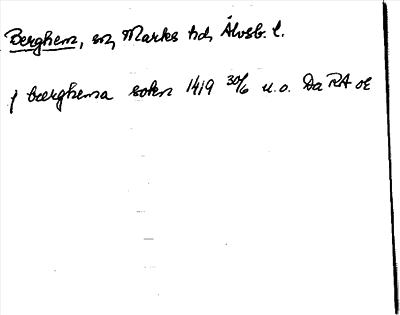 Berghem, sn, Marks hd, Älvsb. l.
j bærghema sokn 1419 30/6 u.o. Da RA or